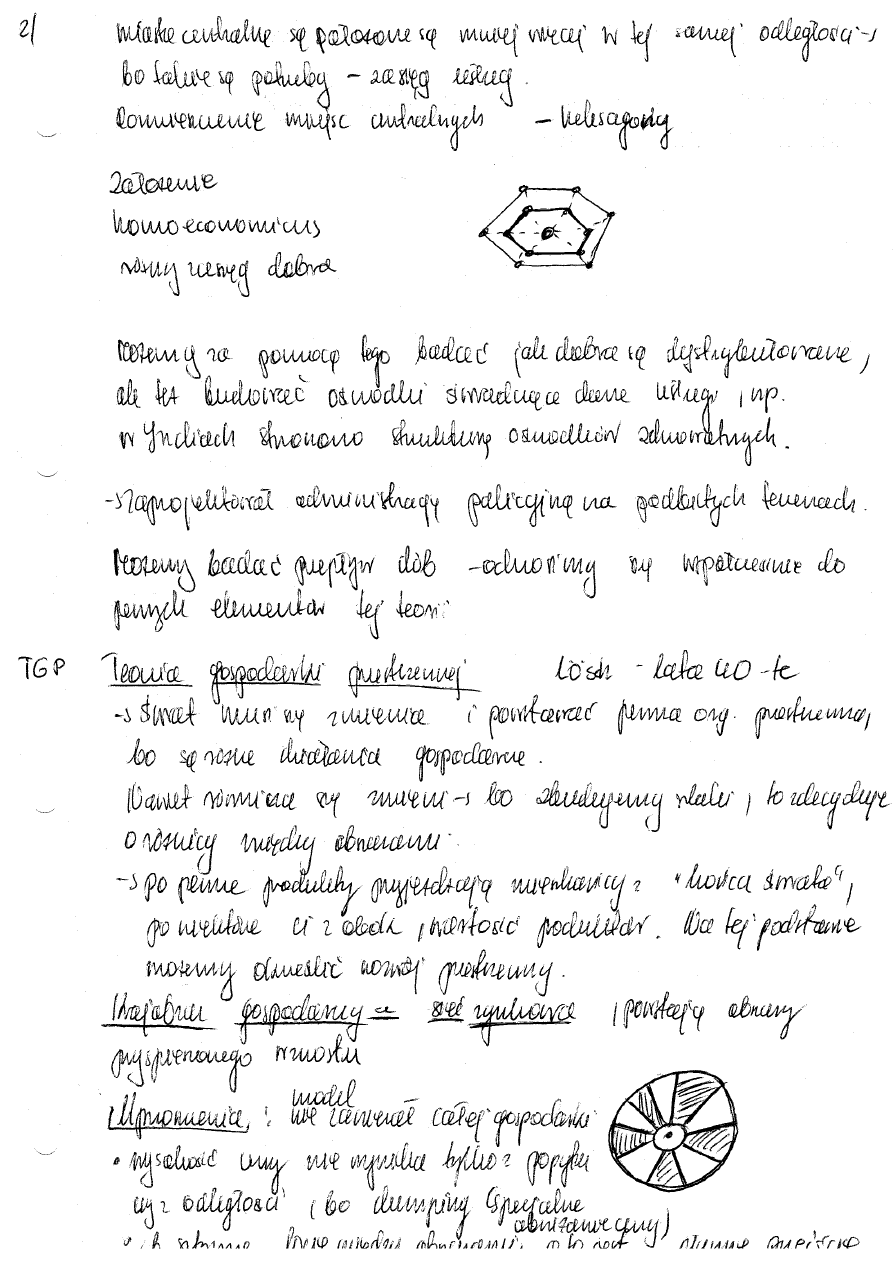 2/ miasta centralne są położone są mniej więcej w tej samej odległości →
bo takie są potrzeby – zasięg usług.
Rozmieszczenie miejsc centralnych – heksagony
Założenie
homo economicus
różny zasięg dobra
Możemy za pomocą tego badać jak dobra są dystrybutowane,
ale też budować ośrodki świadczące dane usługi, np.
w Indiach stworzono strukturę ośrodków zdrowotnych.
→ Zaprojektował administrację policyjną na podbitych terenach.
Możemy badać przepływ dóbr – odnosimy się współcześnie do
pewnych elementów tej teorii
TGP Teoria gospodarki przestrzennej Lösch – lata 40-te
→ Świat musi się zmieniać i powstawać pewna org. przestrzenna,
bo są różne działania gospodarcze.
Nawet równina się zmieni → bo zbudujemy szlaki, to zdecyduje
o różnicy między obszarami.
→ po pewne produkty przyjeżdżają mieszkańcy z "końca świata",
po niektóre ci z obok, wartość produktów. Na tej podstawie
możemy określić rozwój przestrzenny.
Krajobraz gospodarczy = sieć rynkowa, powstają obszary
przyspieszonego wzrostu
model
Uproszczenia: nie zawierał całej gospodarki
• wysokość ceny nie wynika tylko z popytu
czy z odległości, bo dumping (specjalne
obniżanie ceny)